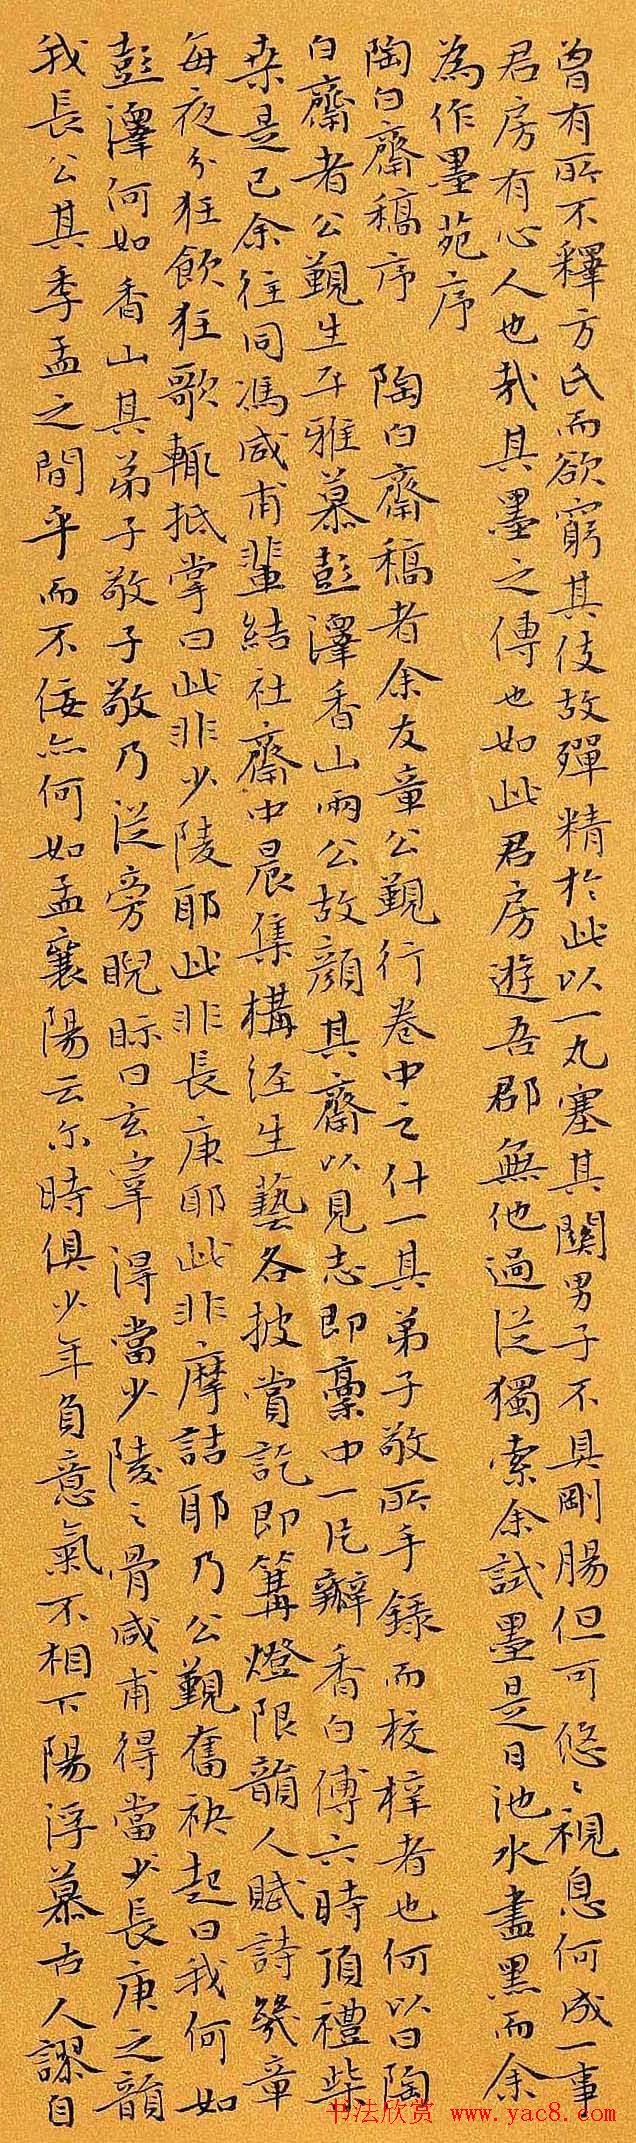 曾有所不釋方氏而欲窮其伎故殫精於此以一丸塞其關男子不具剛腸但可悠〻視息何成一事
君房有心人也哉其墨之傳也如此君房遊吾郡無他過從獨索余試墨是日池水盡黑而余
為作墨苑序
陶白齋稿序　陶白齋稿者余友章公覲行卷中之什一其弟子敬所手錄而校梓者也何以曰陶
白齋者公覲生平雅慕彭澤香山兩公故顏其齋以見志即稾中一瓣香白傅六時頂禮柴
桒是已余往同馮咸甫輩結社齋中晨集構經生藝各披賞訖即篝燈限韻人賦詩幾章
每夜分狂飲狂歌輒抵掌曰此非少陵耶此非長庚耶此非摩詰耶乃公覲奮袂起曰我何如
彭澤何如香山其弟子敬子敬乃從旁睨眎曰玄宰得當少陵〻骨咸甫得當少長庚之韻
我長公其季孟之間乎而不佞亦何如孟襄陽云尔時俱少年負意氣不相下陽浮慕古人謬自
书法欣赏 www.yac8.com